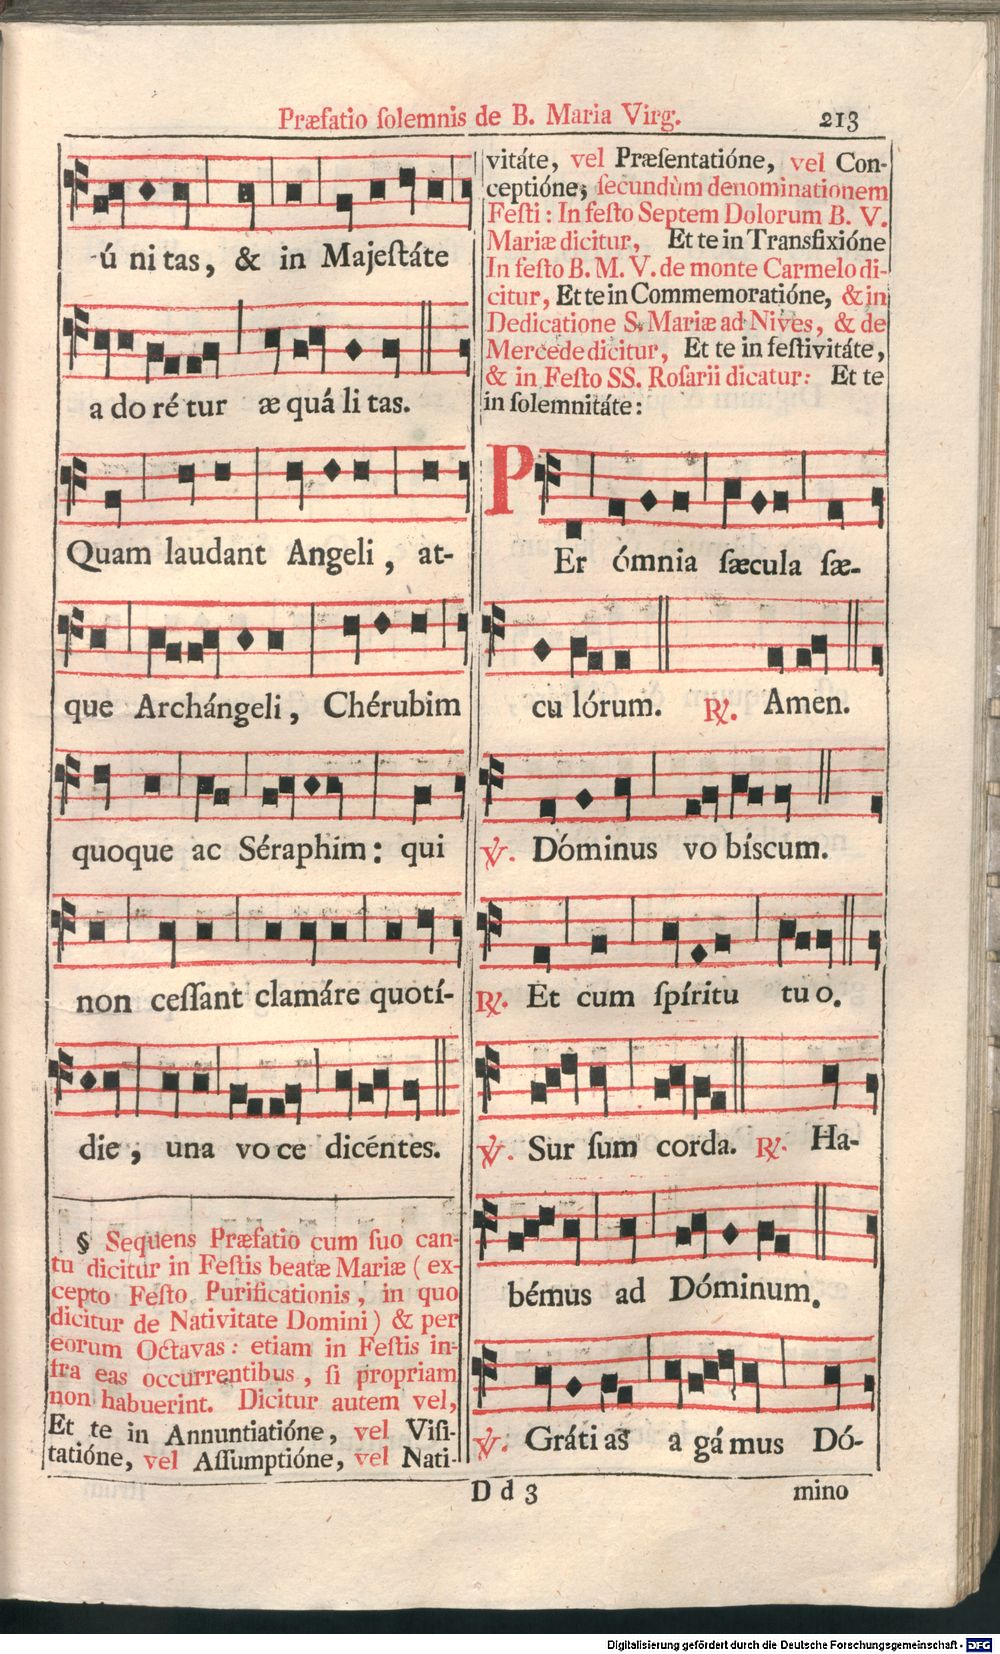 Præfatio ſolemnis de B. Maria Virg. 213
-ú ni tas, & in Majeſtáte
a do ré tur æ quá li tas.
Quam laudant Angeli, at-
que Archángeli, Chérubim
quoque ac Séraphim: qui
non ceſſant clamáre quotí-
die, una vo ce dicéntes.
§ Sequens Præfatio cum ſuo can-
tu dicitur in Feſtis beatæ Mariæ (ex-
cepto Feſto Purificationis, in quo
dicitur de Nativitate Domini) & per
eorum Octavas: etiam in Feſtis in-
fra eas occurrentibus, ſi propriam
non habuerint. Dicitur autem vel,
Et te in Annuntiatióne, vel Viſi-
tatióne, vel Aſſumptióne, vel Nati-
vitáte, vel Præſentatióne, vel Con-
ceptióne; ſecundùm denominationem
Feſti: In feſto Septem Dolorum B. V.
Mariæ dicitur, Et te in Transfixióne
In feſto B. M. V. de monte Carmelo di-
citur, Et te in Commemoratióne, & in
Dedicatione S. Mariæ ad Nives, & de
Mercede dicitur, Et te in feſtivitáte,
& in Feſto SS. Roſarii dicatur: Et te
in ſolemnitáte:
PEr ómnia ſæcula ſæ-
cu lórum. ℟. Amen.
℣. Dóminus vo bíscum.
℟. Et cum ſpíritu tu o.
℣. Sur ſum corda. ℟. Ha-
bémus ad Dóminum.
℣. Gráti as a gá mus Dó-
D d 3 mino
Digitalisierung gefördert durch die Deutsche Forschungsgemeinschaft - DFG